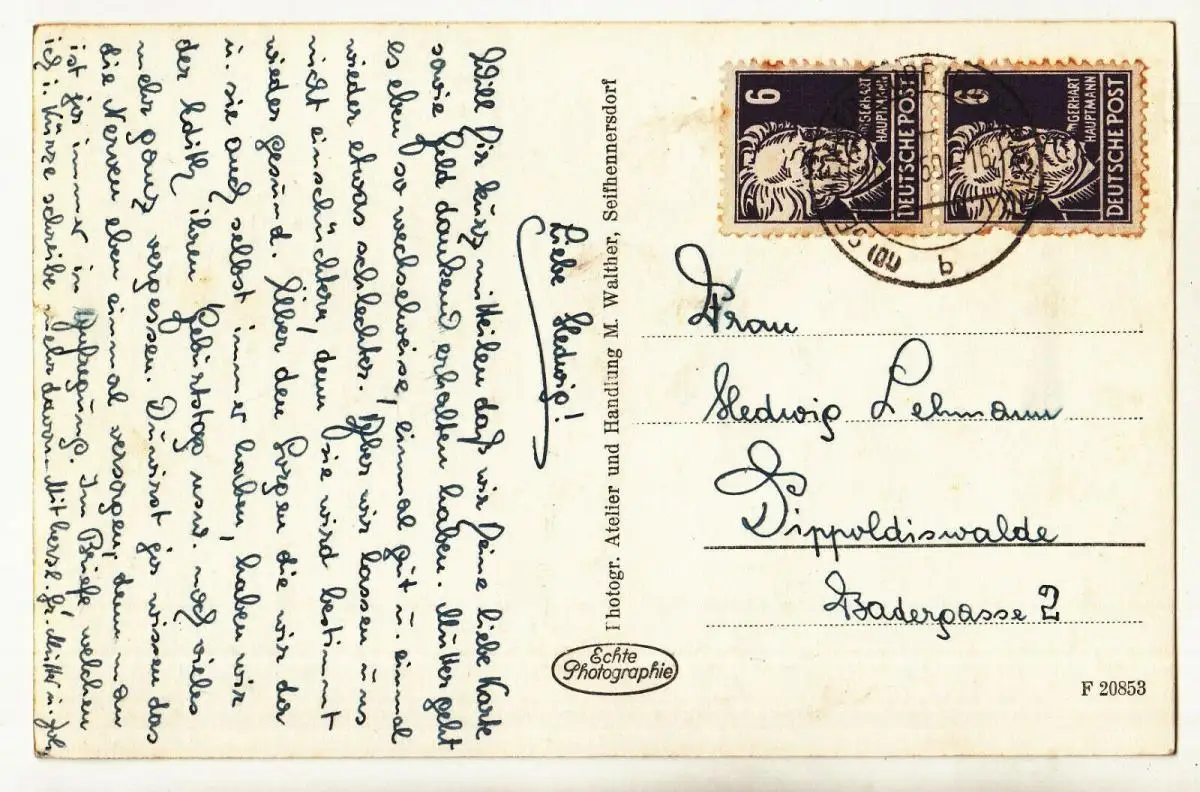 Liebe Hedwig!
Will Dir kurz mitteilen daß wir Deine liebe Karte
sowie Geld dankend erhalten haben. Mutter geht
es eben so wechselweise, einmal gut u. einmal
wieder etwas schlechter. Aber wir lassen uns
nicht einschüchtern, denn sie wird bestimmt
wieder gesund. Über den Sorgen die wir da
u. sie auch selbst immer haben, haben wir
der Edith ihren Gebürtstag usw. noch vieles
mehr ganz vergessen. Du wirst ja wissen das
die Nerven eben einmal versagen, denn man
ist ja immer in Aufregung. Im Briefe welchen
ich i. Kürze schreibe mehr davon. Mit herzl. Gr. Mutter u.
Photogr. Atelier und Handlung M. Walther, Seifhennersdorf
Echte
Photographie
6
GERHART
HAUPTMANN
DEUTSCHE POST
6
GERHART
HAUPTMANN
DEUTSCHE POST
b
Frau
Hedwig Lehmann
Dippoldiswalde
Badergasse 2
F 20853